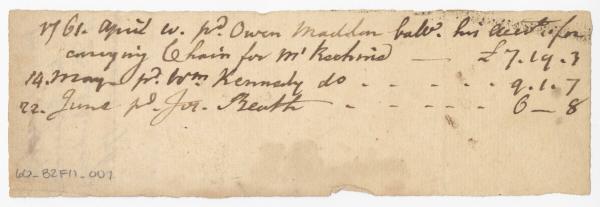 1761. April 10. pd. Owen Madden balce. his Accot. for
carrying Chain for Mr
— £7.19.3
14. May pd. Wm Kennedy do - - - - - 9.1.7
22. June pd. Jos. Beath - - - - - 6 — 8
60-B2F11-007